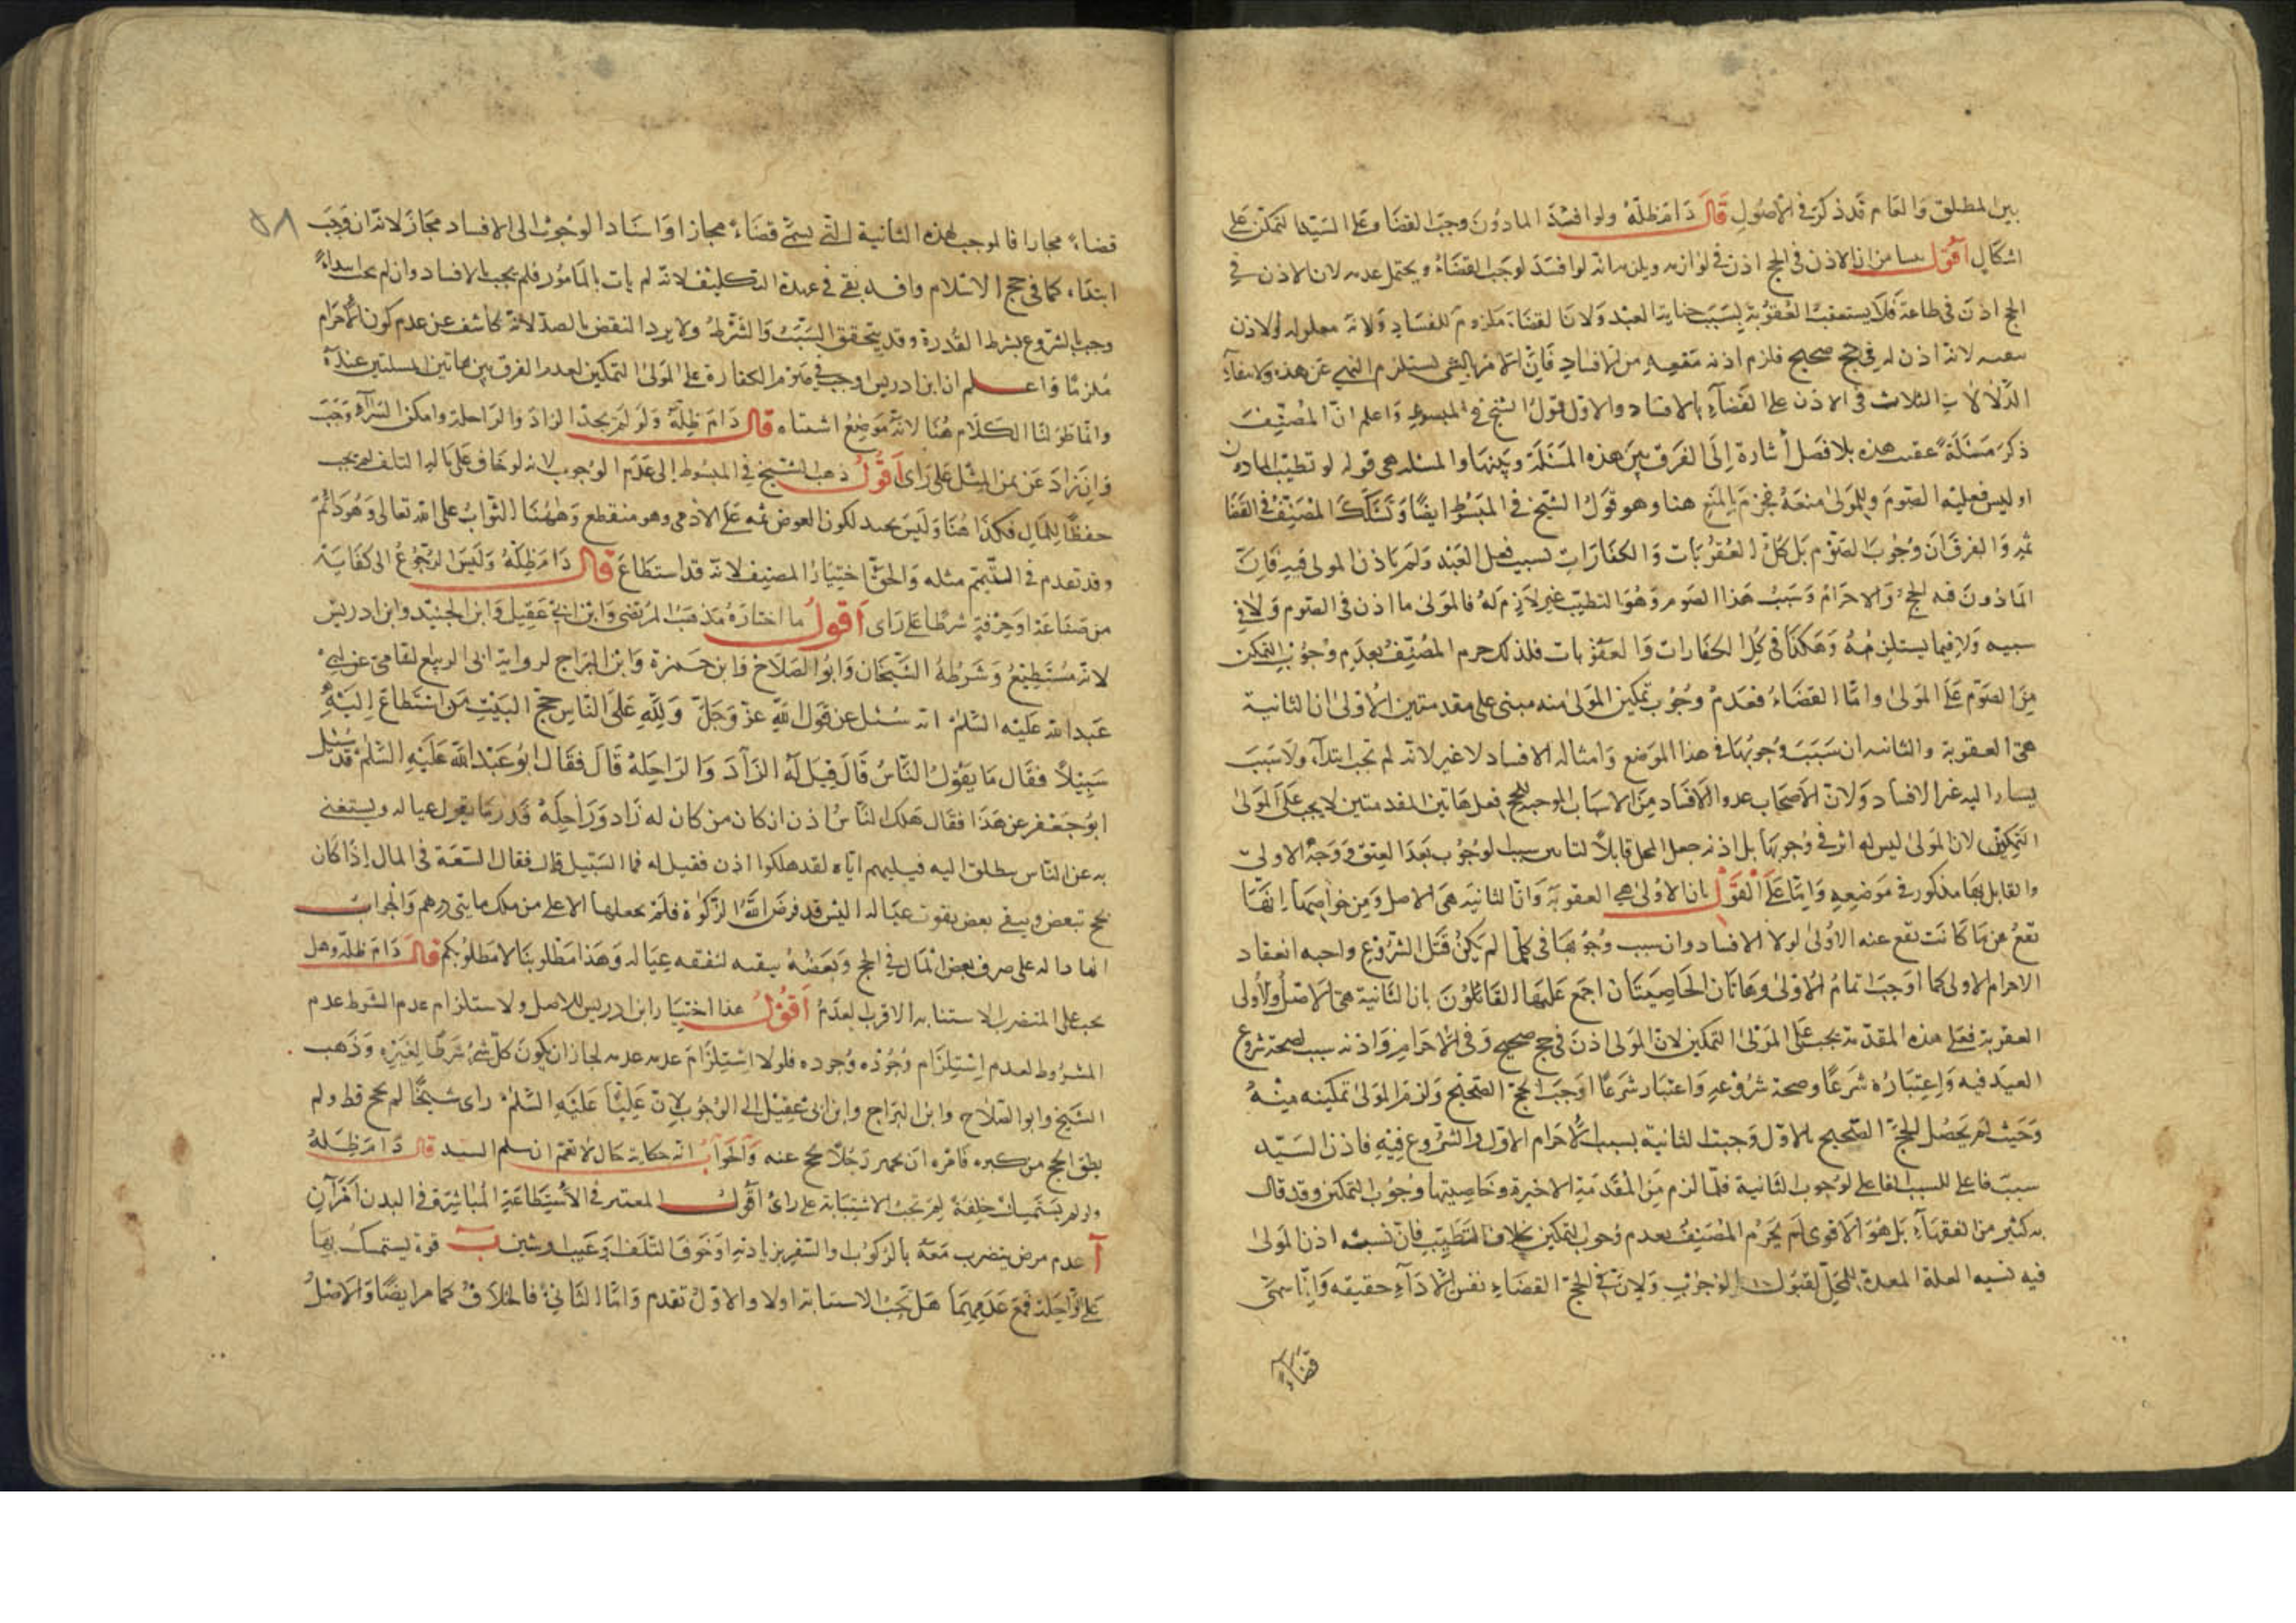 بين المطلق والعام قد ذكرت في الأصول قال دام ظله ولو افسد الماذون وجب القضا وعلى السيد التمكن على
اشكال اقول ينشا من ان الاذن في الحج اذن في لوازمه ويلزمه انه لو افسد لوجب القضاء ويحتمل عدمه لان الاذن في
الحج اذن في طاعة فلا يستعقب العقوبة بسبب جناية العبد ولان القضاء ملزوم للفساد ولانه معلوله ولا اذن
لانه اذن له في حج صحيح فلزم اذنه منعه من الافساد فان الامر بالشي يستلزم النهي عن هذه ولانتفاء
الدلالات الثلاث في الاذن على القضاء بالافساد والاول قول الشيخ في المبسوط واعلم ان المصنف
ذكر مسئلة عقيب هذه بلا فصل أشارة إلى الفرق بين هذه المسئلة وبينها والمسئله هي قوله لو تطيب الماذون
او لبس فعليه الصوم وللمولى منعه فجزم بالمنع هنا وهو قول الشيخ في المبسوط ايضا وتشكك المصنف في القضا
ثم والفرق ان وجوب الصوم بل كل العقوبات والكفارات بسبب فعل العبد ولم ياذن المولى فيه فان
الماذون فيه الحج والاحرام وسبب هذا الصوم وهو التطيب غير لازم له فالمولى ما اذن في الصوم ولا في
سببه ولا فيما يستلزمه وهكذا في كل الكفارات والعقوبات فلذلك جزم المصنف بعدم وجوب التمكين
من الصوم على المولى واما القضاء فعدم وجوب تمكين المولى منه مبنى على مقدمتين الأولى ان الثانية
هي العقوبة والثانيه ان سبب وجوبها في هذا الموضع وامثاله الافساد لا غير لانه لم تجب ابتداء ولا سبب
يشار اليه غير الافساد ولان الاصحاب عدوا الافساد من الاسباب الموجبة للحج فعلى هاتين المقدمتين لا يجب على المولى
التمكين لان المولى ليس له اثر في وجوبها بل اذنه جعل المحل قابلا لتاثير سبب الوجوب بعد العتق ووجه الاولى
والقايل بها مذكور في موضعه واما على القول بان الاولى هي العقوبة وان الثانيه هي الاصل ومن خواصها انها
تقع عن ما كانت تقع عنه الاولى لولا الافساد وان سبب وجوبها في كلما لم يكن قبل الشروع واجبه انعقاد
الاحرام الاولى كما اوجب اتمام الاولى وهاتان الخاصيتان اجمع عليهما القائلون بان الثانية هي الاصل والأولى
العقوبة فعلى هذه المقدمة يجب على المولى التمكين لان المولى اذن في حج صحيح وفي الاحرام واذنه سبب لصحة شروع
العبد فيه واعتباره شرعا وصحة شروعه واعتباره شرعا اوجب الحج الصحيح ولزم المولى تمكينه منه
وحيث لم يحصل الحج الصحيح بالاول وجبت الثانية بسبب الاحرام الاول والشروع فيه فاذن السيد
سبب فاعلي للسبب الفاعلي لوجوب الثانية فلما لزم من المقدمة الاخيرة وخاصيتها وجوب التمكن وقد قال
به كثير من الفقهاء بل هو الاقوى لم يجزم المصنف بعدم وجوب التمكين بخلاف التطيب فان نسبة اذن المولى
فيه نسبه العلة المعدة للمحل لقبول الوجوب ولان في الحج القضاء نفس الاداء حقيقه وانما سمى
قضاء
٥٨
قضاء مجازا فالموجب لهذه الثانية التي يسمى قضاء مجازا واسناد الوجوب الى الافساد مجاز لانه ان وجب
ابتداء كما في حج الاسلام وافسده بقي في عهدة التكليف لانه لم يات بالمامور فلم يجب بالافساد وان لم يجب ابتداء
وجب بالشروع بشرط القدرة وقد يتحقق السبب والشرط ولا يرد النقض بالصد لانه كاشف عن عدم كون الاحرام
ملزما واعلم ان ابن ادريس اوجب في صوم الكفارة على المولى التمكين لعدم الفرق بين هاتين المسئلتين عنده
وانما طولنا الكلام هنا لانه موضع اشتباه قال دام ظله ولو لم يجد الزاد والراحلة وامكن الشراء وجب
وان زاد عن ثمن المثل على راى اقول ذهب الشيخ في المبسوط إلى عدم الوجوب لانه لو خاف على ماله التلف لم يجب
حفظا للمال فكذا هنا وليس بجيد لكون العوض ثمه على الادمي وهو منقطع وههنا الثواب على الله تعالى وهو دائم
وقد تقدم في التيمم مثله والحق اختيار المصنف لانه قد استطاع قال دام ظله وليس الرجوع الى كفاية
من صناعة او حرفة شرطا على راى اقول ما اختاره مذهب المرتضى وابن ابي عقيل وابن الجنيد وابن ادريس
لانه مستطيع وشرطه الشيخان وابو الصلاح وابن حمزة وابن البراج لرواية ابى الربيع لشامي عن ابي
عبد الله عليه السلم انه سئل عن قول الله عز وجل ولله على الناس حج البيت من استطاع اليه
سبيلا فقال ما يقول الناس قال قيل له الزاد والراحلة قال فقال ابو عبد الله عليه السلم قد سئل
ابو جعفر عن هذا فقال هلك الناس اذن ان كان من كان له زاد وراحلة قدر ما يقول عياله ويستغني
به عن الناس ينطلق اليه فيسلبهم اياه لقد هلكوا اذن فقيل له فما السبيل قال فقال السعة في المال إذا كان
يحج ببعض ويبقى بعض يقوت عياله اليس قد فرض الله الزكوة فلم يجعلها الا على من ملك مايتي درهم والجواب
انها دالة على صرف بعض المال في الحج وبعضه يبقيه لنفقه عياله وهذا مطلوبنا لا مطلوبكم قال دام ظله وهل
يجب على المتضرر الاستنابه الاقرب العدم اقول هذا اختيار ابن ادريس للاصل ولاستلزام عدم الشرط عدم
المشروط لعدم استلزام وجوده وجوده فلولا استلزام عدمه عدمه لجاز ان يكون كل شئ شرطا لغيره وذهب
الشيخ وابو الصلاح وابن البراج وابن ابي عقيل الى الوجوب لان عليا عليه السلم راى شيخا لم يحج قط ولم
يطق الحج من كبره فامره ان يجهز رجلا يحج عنه والجواب انه حكاية حال لا تعم ان سلم السند قال دام ظله
ولو لم يستمسك خلقة لم تجب الاستنابة على راى اقول المعتبر في الاستطاعة المباشرة في البدن امران
آ عدم مرض يتضرب معه بالركوب والسفر بزيادته او خوف التلف او عيب او شين ب قوة يستمسك بها
على الراحلة فمع عدمهما هل تجب الاستنابة اولا والاول تقدم واما الثاني فالخلاف كما مر ايضا والاصل